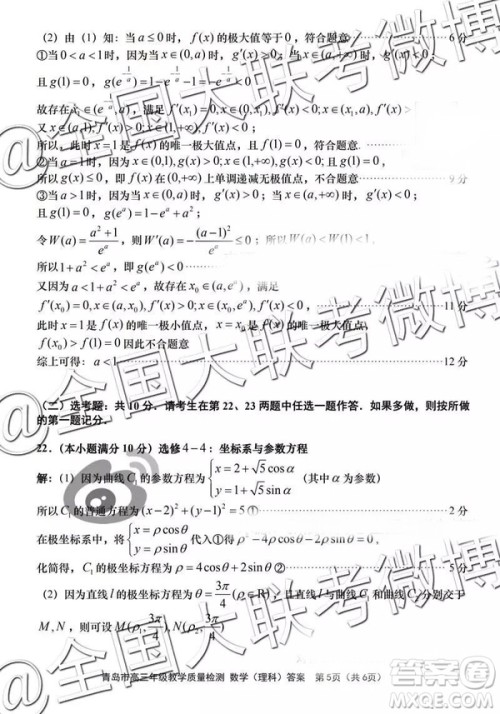 (2) 由 (1) 知: 当 a≤0 时, f(x) 的极大值等于 0, 符合题意 6 分
①当 0<a<1 时, 因为当 x∈(0,a) 时, g'(x)>0; 当 x∈(a,+∞) 时, g'(x)<0;
且 g(1)=0,
故存在 满足
又
所以, 此时 x=1 是 f(x) 的唯一极大值点, 且 f(1)=0, 符合题意
②当 a=1 时, 因为 x∈(0,1), g'(x)>0; x∈(1,+∞), g'(x)<0, g(1)=0
所以 g(x)≤0, 即 f(x) 在 (0,+∞) 上单调递减无极值点, 不合题意 9 分
③当 a>1 时, 因为当 x∈(0,a) 时, g'(x)>0; 当 x∈(a,+∞) 时, g'(x)<0;
且 g(1)=0, g(e^a)=1-e^a+a²;
令 W(a)=(a²+1)/e^a, 则 W'(a)=-(a-1)²/e^a<0 所以 W(a)<W(1)<1,
所以 1+a²<e^a, 即 g(e^a)<0
又因为 a<1+a²<e^a, 故存在 x₀∈(a,e^a), 满足
f'(x₀)=0, x∈(a,x₀), f'(x)>0; 11 分
此时 x=1 是 f(x) 的唯一极小值点, x=x₀ 是 f(x) 的唯一极大值点,
f(x₀)>f(1)=0 因此不合题意
综上可得: a<1 12 分
(二) 选考题: 共 10 分. 请考生在第 22、23 两题中任选一题作答. 如果多做, 则按所做
的第一题记分.
22. (本小题满分 10 分) 选修 4-4: 坐标系与参数方程
解: (1) 因为曲线 C₁ 的参数方程为 {x=2+√5cosα y=1+√5sinα (其中 α 为参数)
所以 C₁ 的普通方程为 (x-2)²+(y-1)²=5 ① 2 分
在极坐标系中, 将 {x=ρcosθ y=ρsinθ 代入①得 ρ²-4ρcosθ-2ρsinθ=0,
化简得, C₁ 的极坐标方程为 ρ=4cosθ+2sinθ ② 5 分
(2) 因为直线 l 的极坐标方程为 θ=3π/4 (ρ∈R), 且直线 l 与曲线 C₁ 和曲线 C₂ 分别交于
M,N, 则可设 M(ρ₁,3π/4), N(ρ₂,3π/4)
青岛市高三年级教学质量检测 数学 (理科) 答案 第 5 页 (共 6 页)
@全国大联考微博
@全国大联考微博